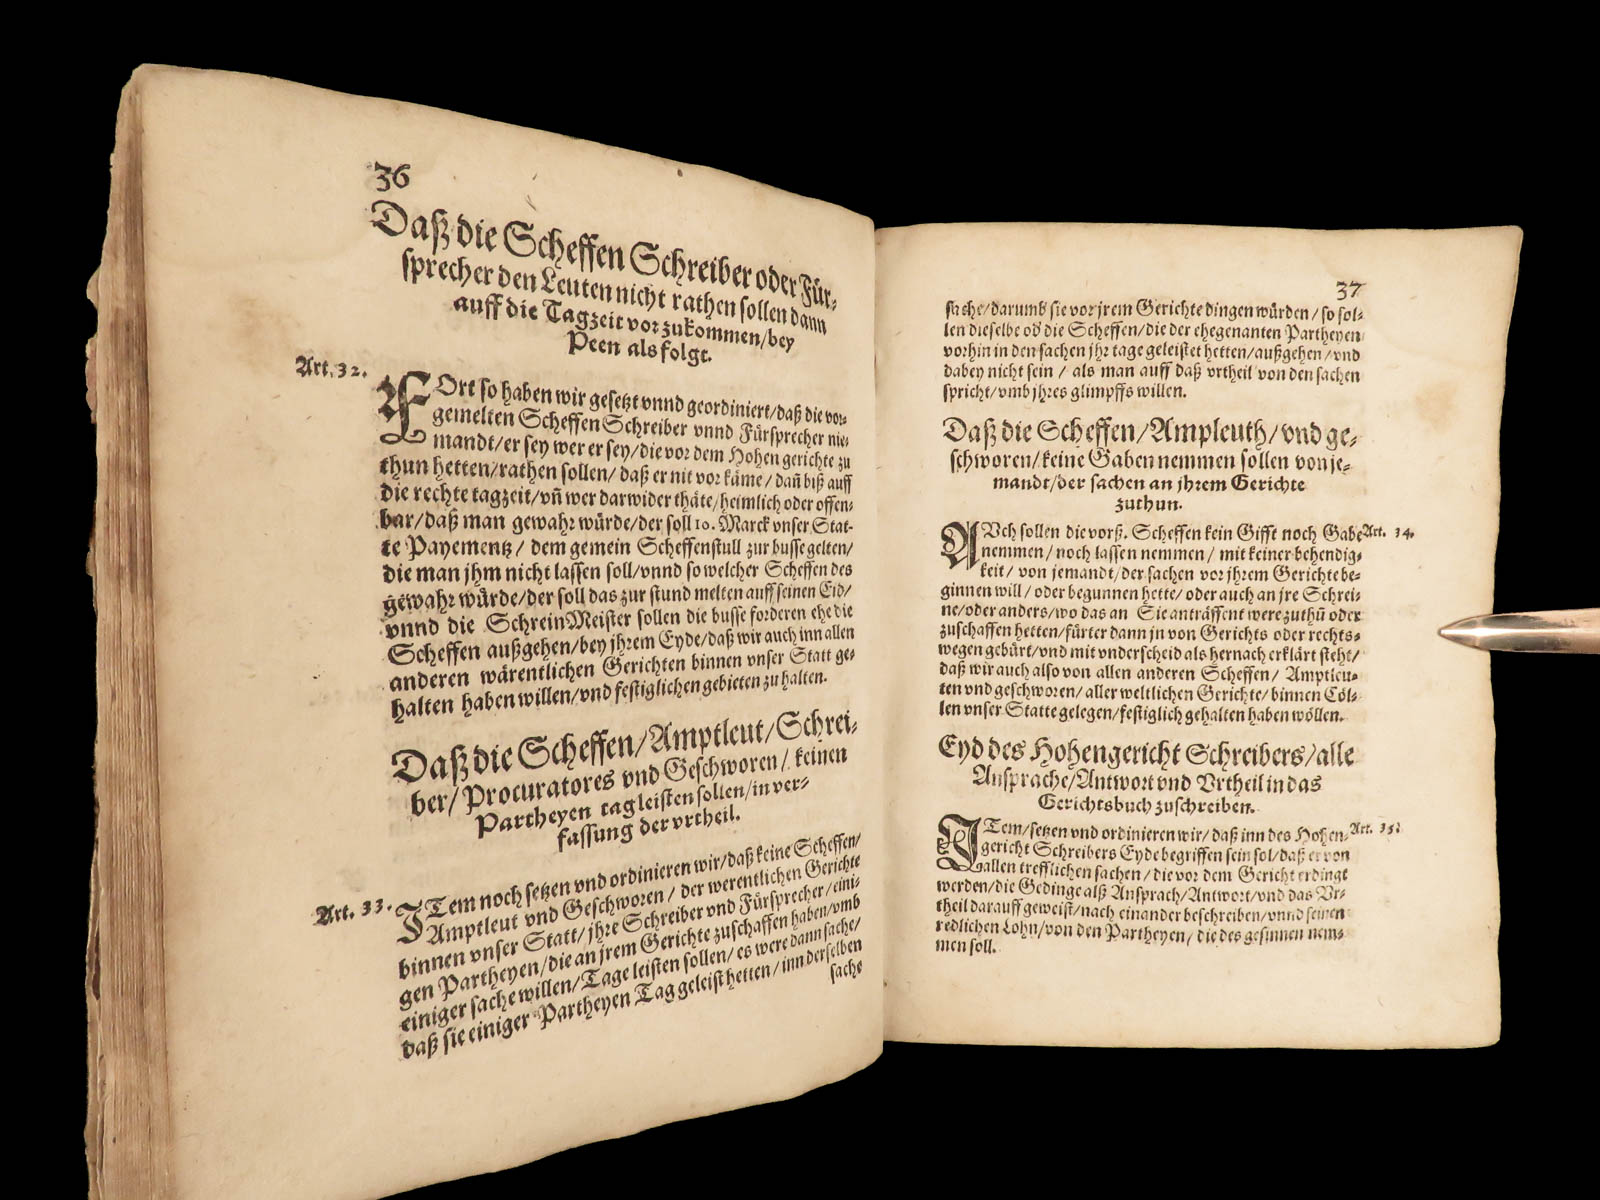 36
Daß die Scheffen Schreiber oder Für-
sprecher den Leuten nicht rathen sollen dann
auff die Tagzeit vorzukommen/bey
Peen als folgt.
Art. 32.
FOrt so haben wir gesetzt vnnd geordiniert/daß die vor-
gemelten Scheffen Schreiber vnnd Fürsprecher nie-
mandt/er sey wer er sey/die vor dem Hohen gerichte zu
thun hetten/rathen sollen/daß er nit vor käme/dañ biß auff
die rechte tagzeit/vñ wer darwider thäte/heimlich oder offen-
bar/daß man gewahr würde/der soll 10. Marck vnser Stat-
te Payementz/ dem gemein Scheffenstull zur busse gelten/
die man jhm nicht lassen soll/vnnd so welcher Scheffen des
gewahr würde/der soll das zur stund melten auff seinen Eid/
vnnd die SchreinMeister sollen die busse forderen ehe die
Scheffen außgehen/bey jhrem Eyde/daß wir auch inn allen
anderen wärentlichen Gerichten binnen vnser Statt ge-
halten haben willen/vnd festiglichen gebieten zu halten.
Daß die Scheffen/Amptleut/Schrei-
ber/Procuratores vnd Geschworen/keinen
Partheyen tag leisten sollen/in ver-
fassung der vrtheil.
Art. 33.
ITem noch setzen vnd ordinieren wir/daß keine Scheffen/
Amptleut vnd Geschworen/ der werentlichen Gerichte
binnen vnser Statt/jhre Schreiber vnd Fürsprecher/eini-
gen Partheyen/die an jrem Gerichte zuschaffen haben/vmb
einiger sache willen/Tage leisten sollen/es were dann sache/
daß sie einiger Partheyen Tag geleist hetten/inn derselben
sache
37
sache/darumb sie vor jrem Gerichte dingen würden/so sol-
len dieselbe ob die Scheffen/die der ehegenanten Partheyen
vorhin in den sachen jhr tage geleistet hetten/außgehen/vnd
dabey nicht sein/ als man auff daß vrtheil von den sachen
spricht/vmb jhres glimpffs willen.
Daß die Scheffen/Ampleuth/vnd ge-
schworen/keine Gaben nemmen sollen von je-
mandt/der sachen an jhrem Gerichte
zuthun.
AVch sollen die vorß. Scheffen kein Gifft noch Gabe
Art. 34.
nemmen/noch lassen nemmen/ mit keiner behendig-
keit/ von jemandt/der sachen vor jhrem Gerichte be-
ginnen will/oder begunnen hette/oder auch an jre Schrei-
ne/oder anders/wo das an Sie anträffent were zuthũ oder
zuschaffen hetten/fürter dann jn von Gerichts oder rechts-
wegen gebürt/vnd mit vnderscheid als hernach erklärt steht/
daß wir auch also von allen anderen Scheffen/ Amptleu-
ten vnd geschworen/aller weltlichen Gerichte/binnen Cöl-
len vnser Statte gelegen/festiglich gehalten haben wöllen.
Eyd des Hohengericht Schreibers/alle
Ansprache/Antwort vnd Vrtheil in das
Gerichtsbuch zuschreiben.
ITem/setzen vnd ordinieren wir/daß inn des Hohen-
Art. 35.
gericht Schreibers Eyde begriffen sein sol/daß er von
allen trefflichen sachen/die vor dem Gericht erdingt
werden/die Gedinge alß Ansprach/Antwort/vnd das Vr-
theil darauff geweist/nach einander beschreiben/vnnd seinen
redlichen Lohn/von den Partheyen/die des gesinnen nem-
men soll.